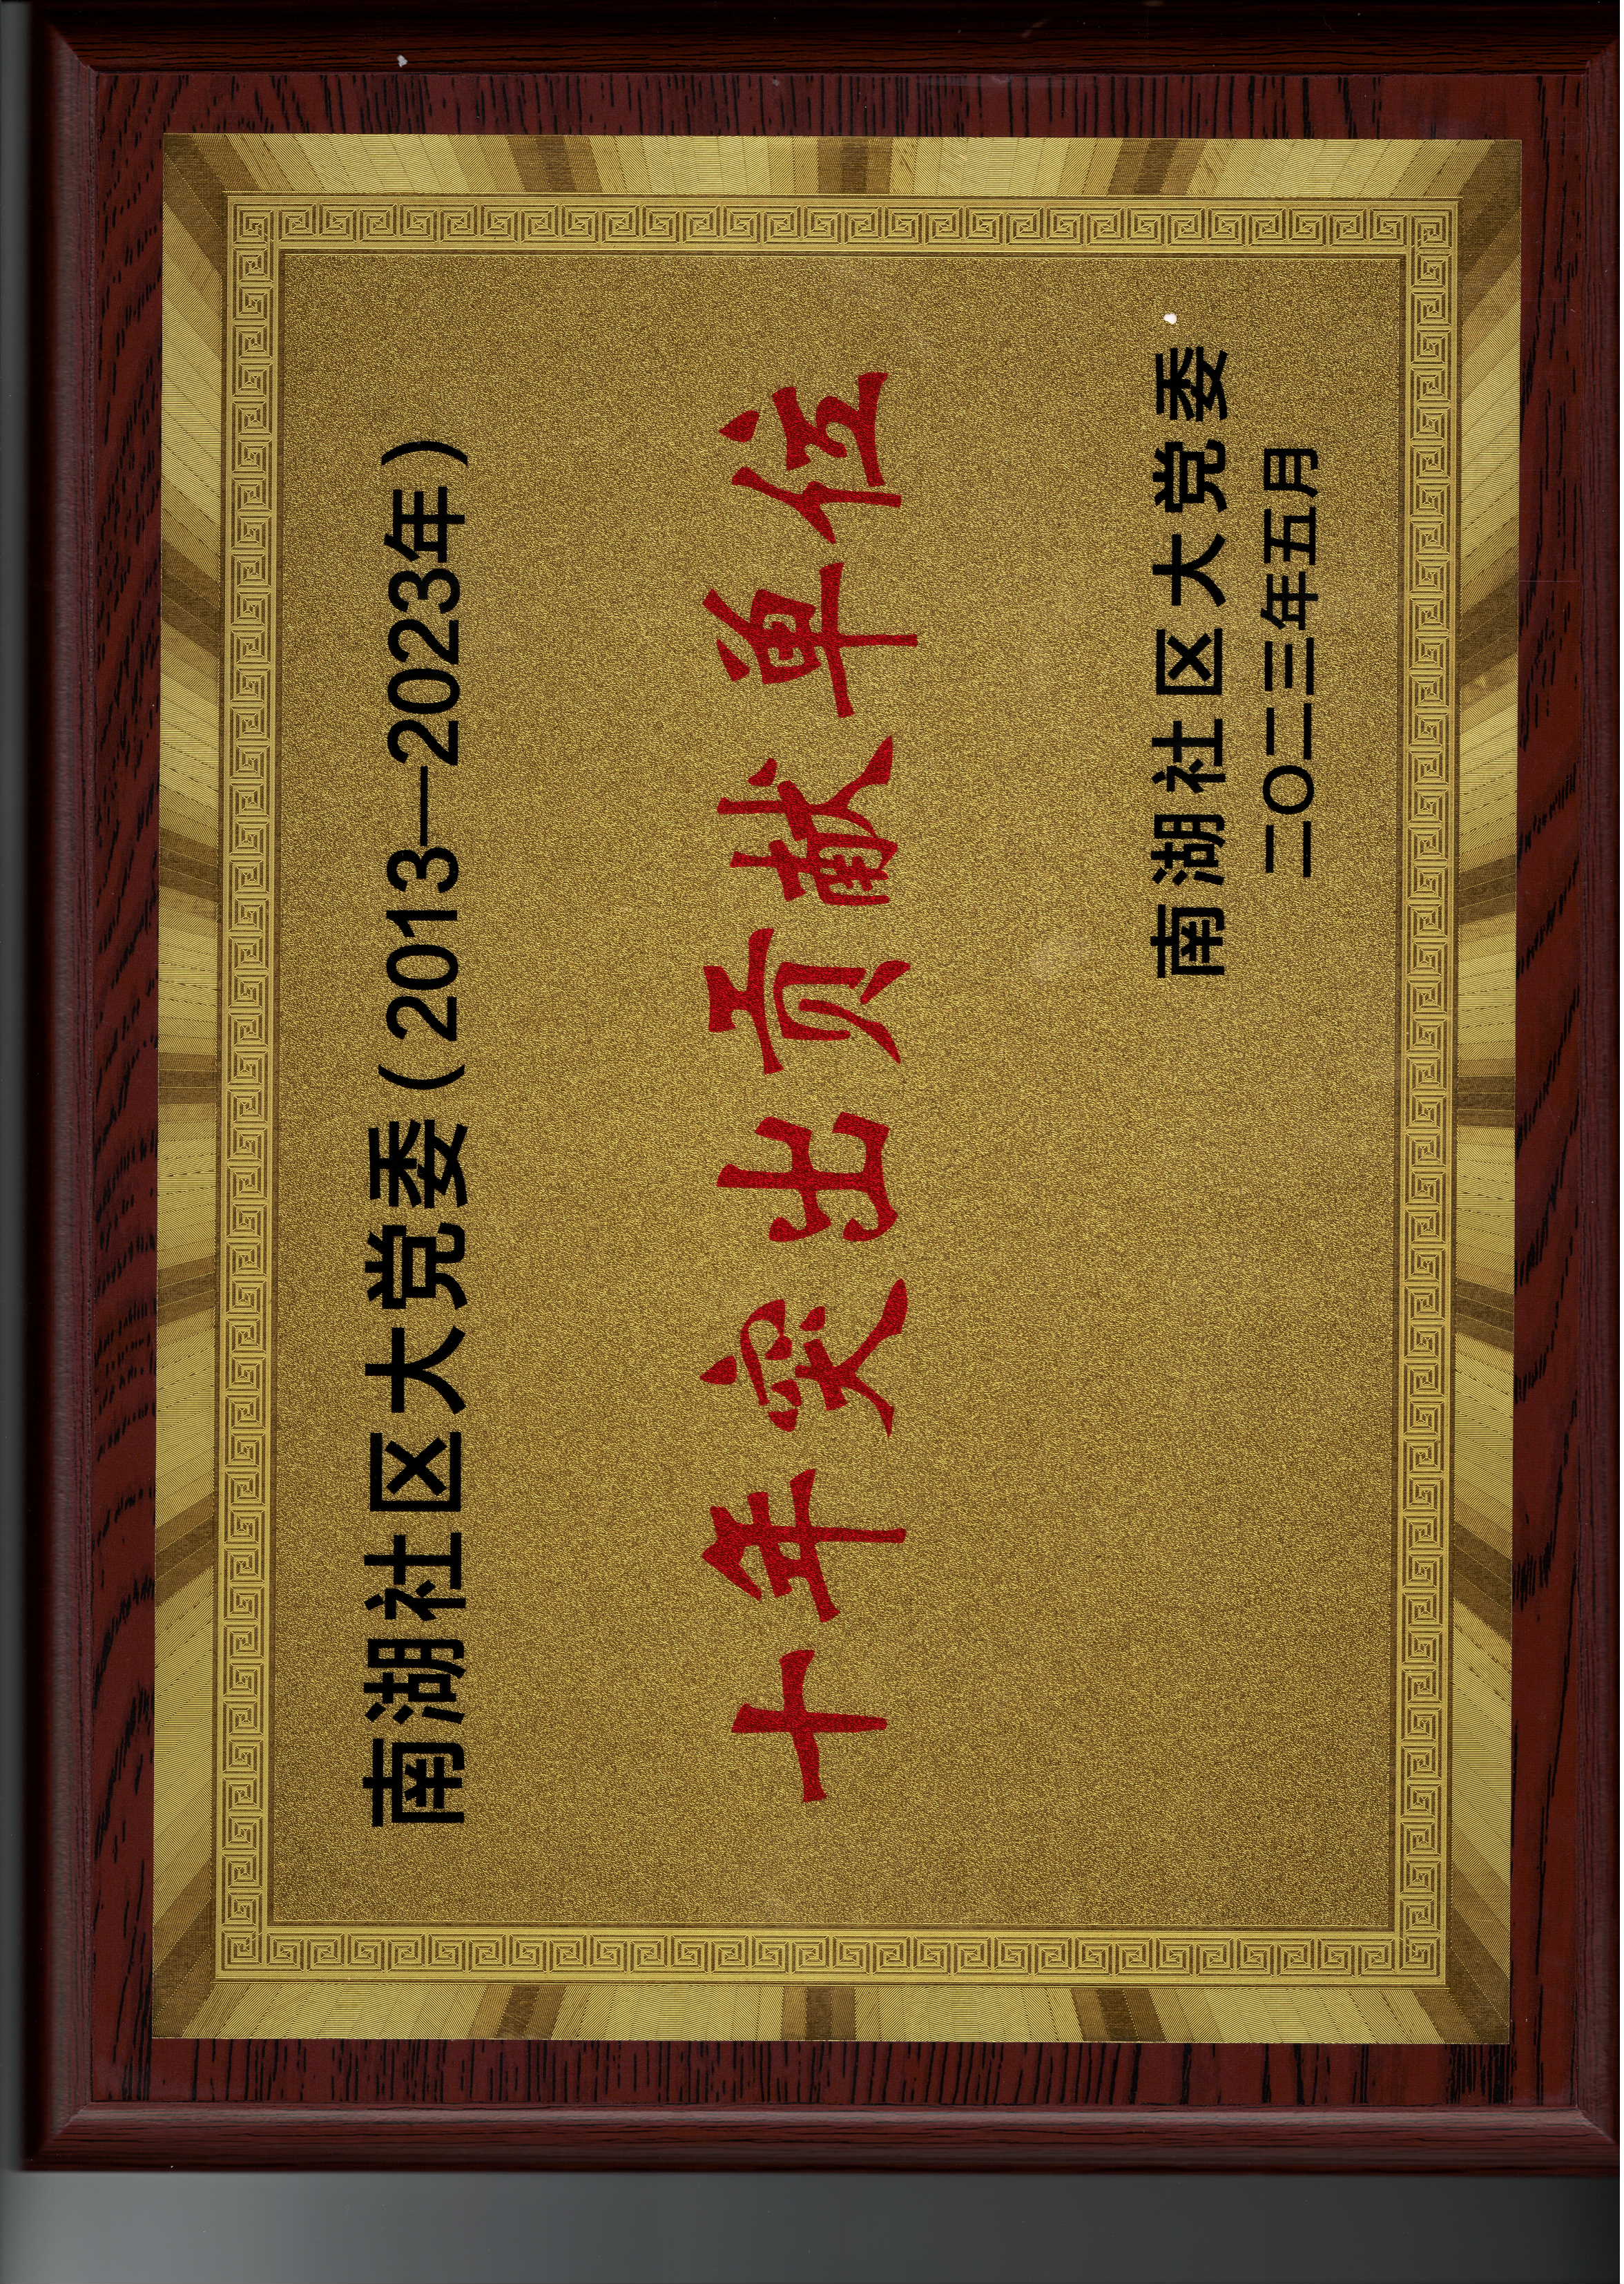 南湖社区大党委（2013—2023年）
十年突出贡献单位
南湖社区大党委
二〇二三年五月